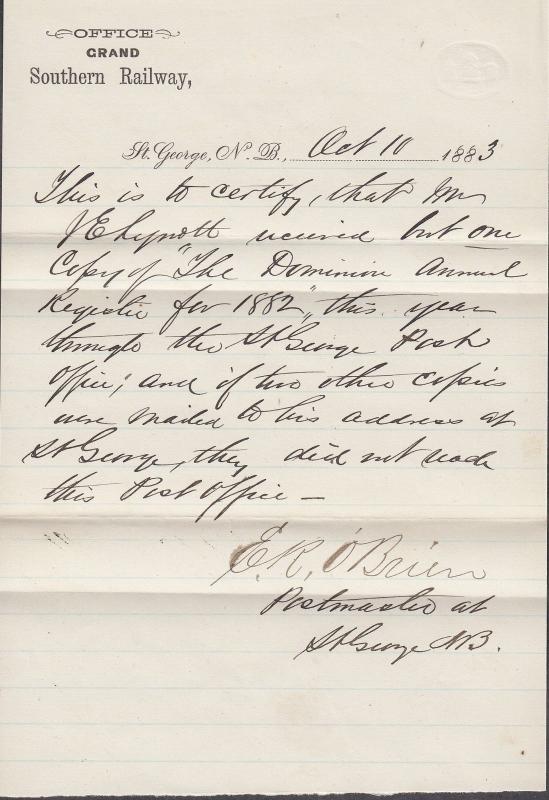 OFFICE
GRAND
Southern Railway,
St. George, N. B., Oct 10 1883
This is to certify, that Mr
J E Lynott received but one
Copy of "The Dominion Annual
Register for 1882", this year
through the St George Post
Office; and if two other copies
were mailed to his address at
St George, they did not reach
this Post Office —
E. R. O'Brien
Postmaster at
St George NB.